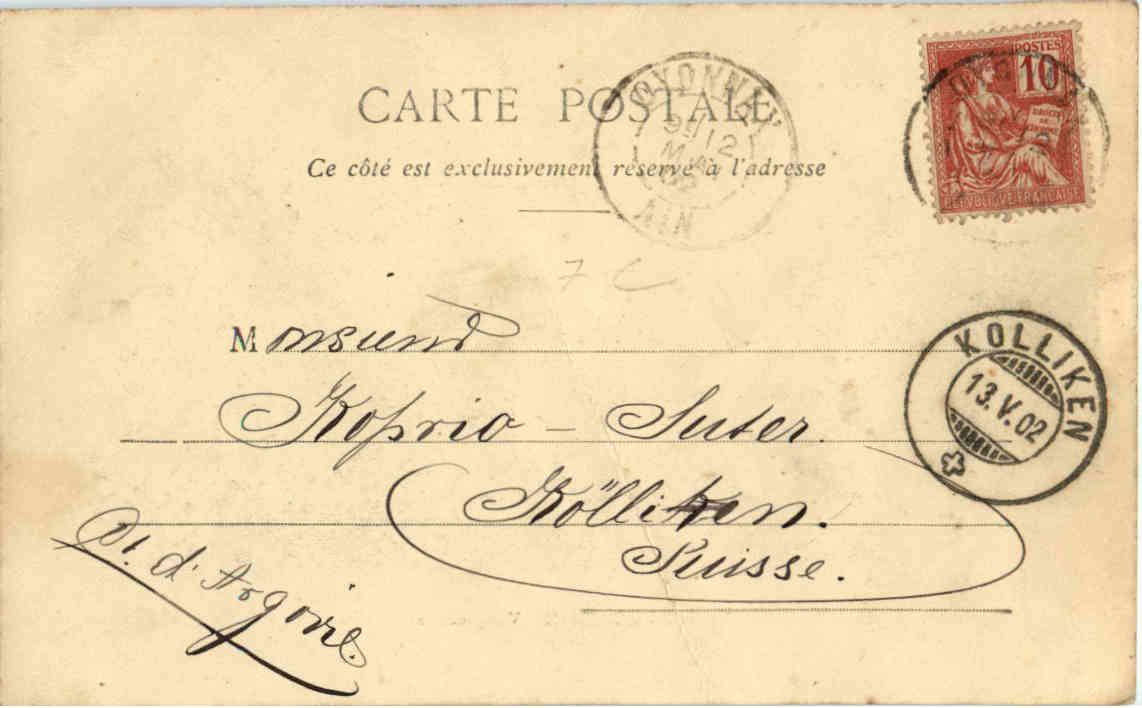 CARTE POSTALE
Ce côté est exclusivement réservé à l'adresse
OYONNAX
12
MAI
02
AIN
POSTES
10
REPVBLIQVE FRANÇAISE
7 C
Monsieur
Koprio - Suter.
Kölliken.
Suisse.
Ct. d'Argovie.
KÖLLIKEN
13.V.02